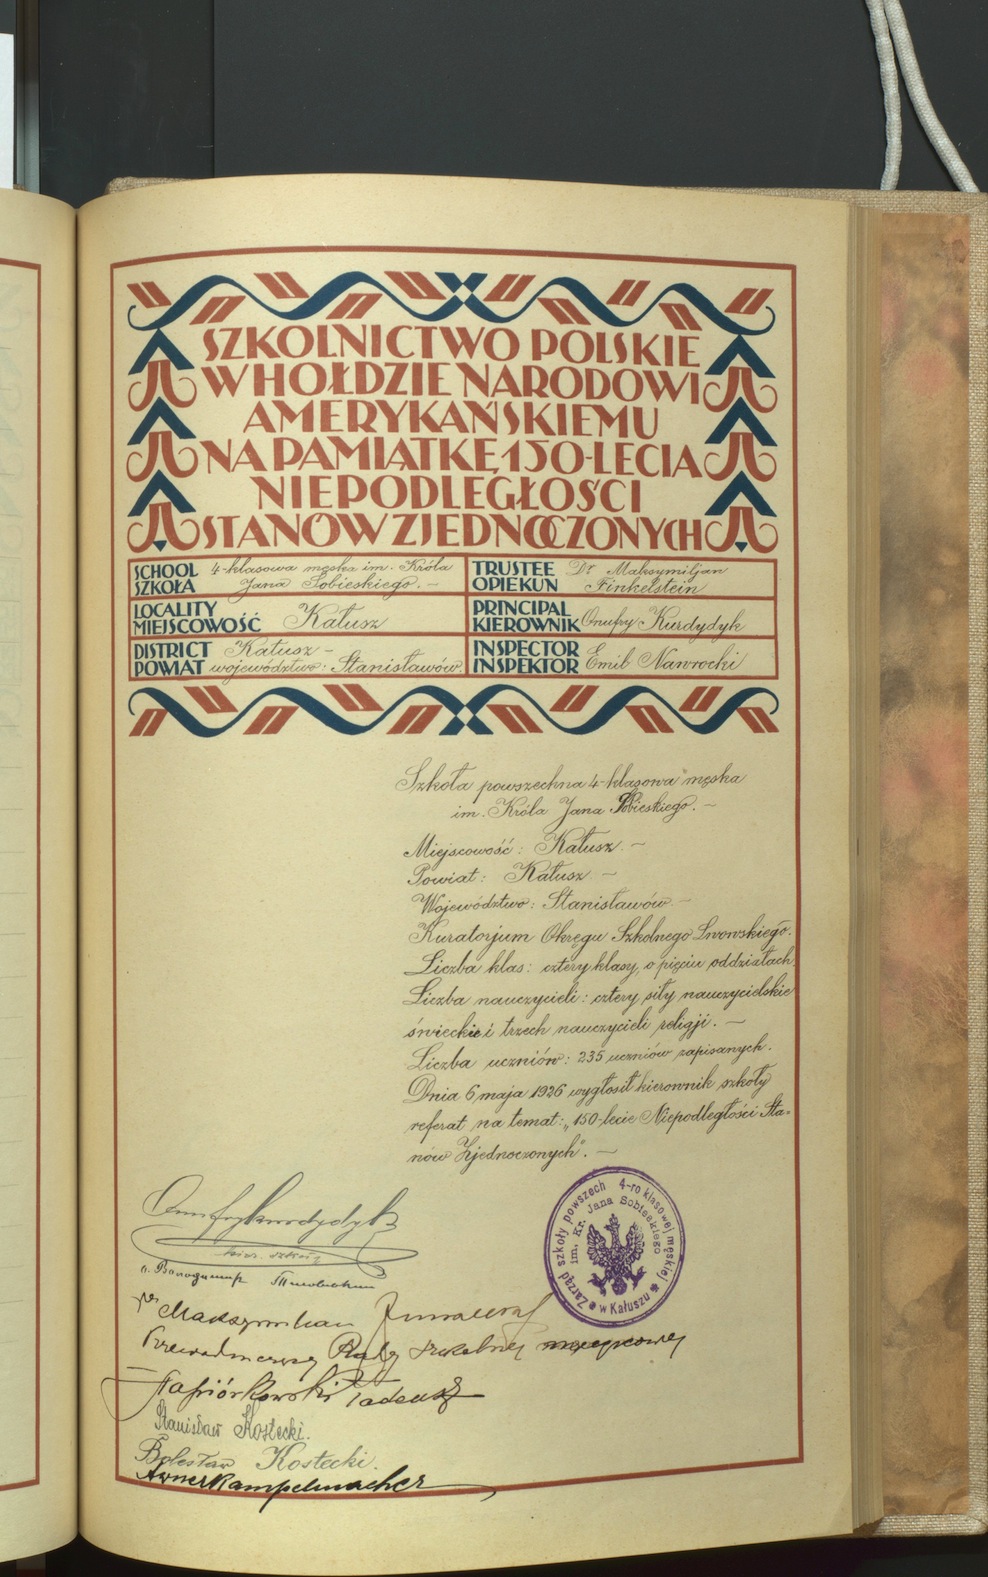 SZKOLNICTWO POLSKIE
W HOŁDZIE NARODOWI
AMERYKAŃSKIEMU
NA PAMIĄTKĘ 150-LECIA
NIEPODLEGŁOŚCI
STANÓW ZJEDNOCZONYCH
SCHOOL SZKOŁA 4-klasowa męska im. Króla Jana Sobieskiego. –
TRUSTEE OPIEKUN Dr Maksymiljan Finkelstein
LOCALITY MIEJSCOWOŚĆ Kałusz
PRINCIPAL KIEROWNIK Onufry Kurdydyk
DISTRICT POWIAT Kałusz – województwo: Stanisławów.
INSPECTOR INSPEKTOR Emil Nawrocki
Szkoła powszechna 4-klasowa męska
im. Króla Jana Sobieskiego. –
Miejscowość: Kałusz. –
Powiat: Kałusz –
Województwo: Stanisławów –
Kuratorjum Okręgu Szkolnego Lwowskiego.
Liczba klas: cztery klasy, o pięciu oddziałach.
Liczba nauczycieli: cztery siły nauczycielskie
świeckie i trzech nauczycieli religji. –
Liczba uczniów: 235 uczniów zapisanych.
Dnia 6 maja 1926 wygłosił kierownik szkoły
referat na temat: „150-lecie Niepodległości Sta-
nów Zjednoczonych". –
Zarząd szkoły powszech 4-ro klasowej męskiej
im. Kr. Jana Sobieskiego
w Kałuszu
Onufry Kurdydyk
kier. szkoły
Maksymilian
Przewodniczący Rady szkolnej miejscowej
Napiórkowski Tadeusz
Stanisław Kostecki.
Bolesław Kostecki.
Awner Kampelmacher